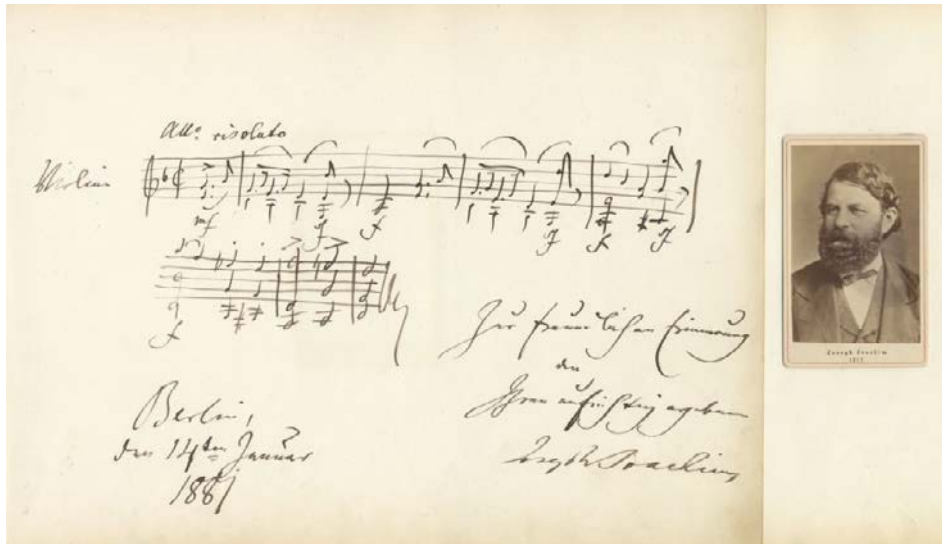 All⁰ risoluto
Violine
mf
f
f
f
f
f
f
Zur freundlichen Erinnerung
an
Ihren aufrichtig ergebenen
Joseph Joachim
Berlin,
den 14ten Januar
1881
Joseph Joachim